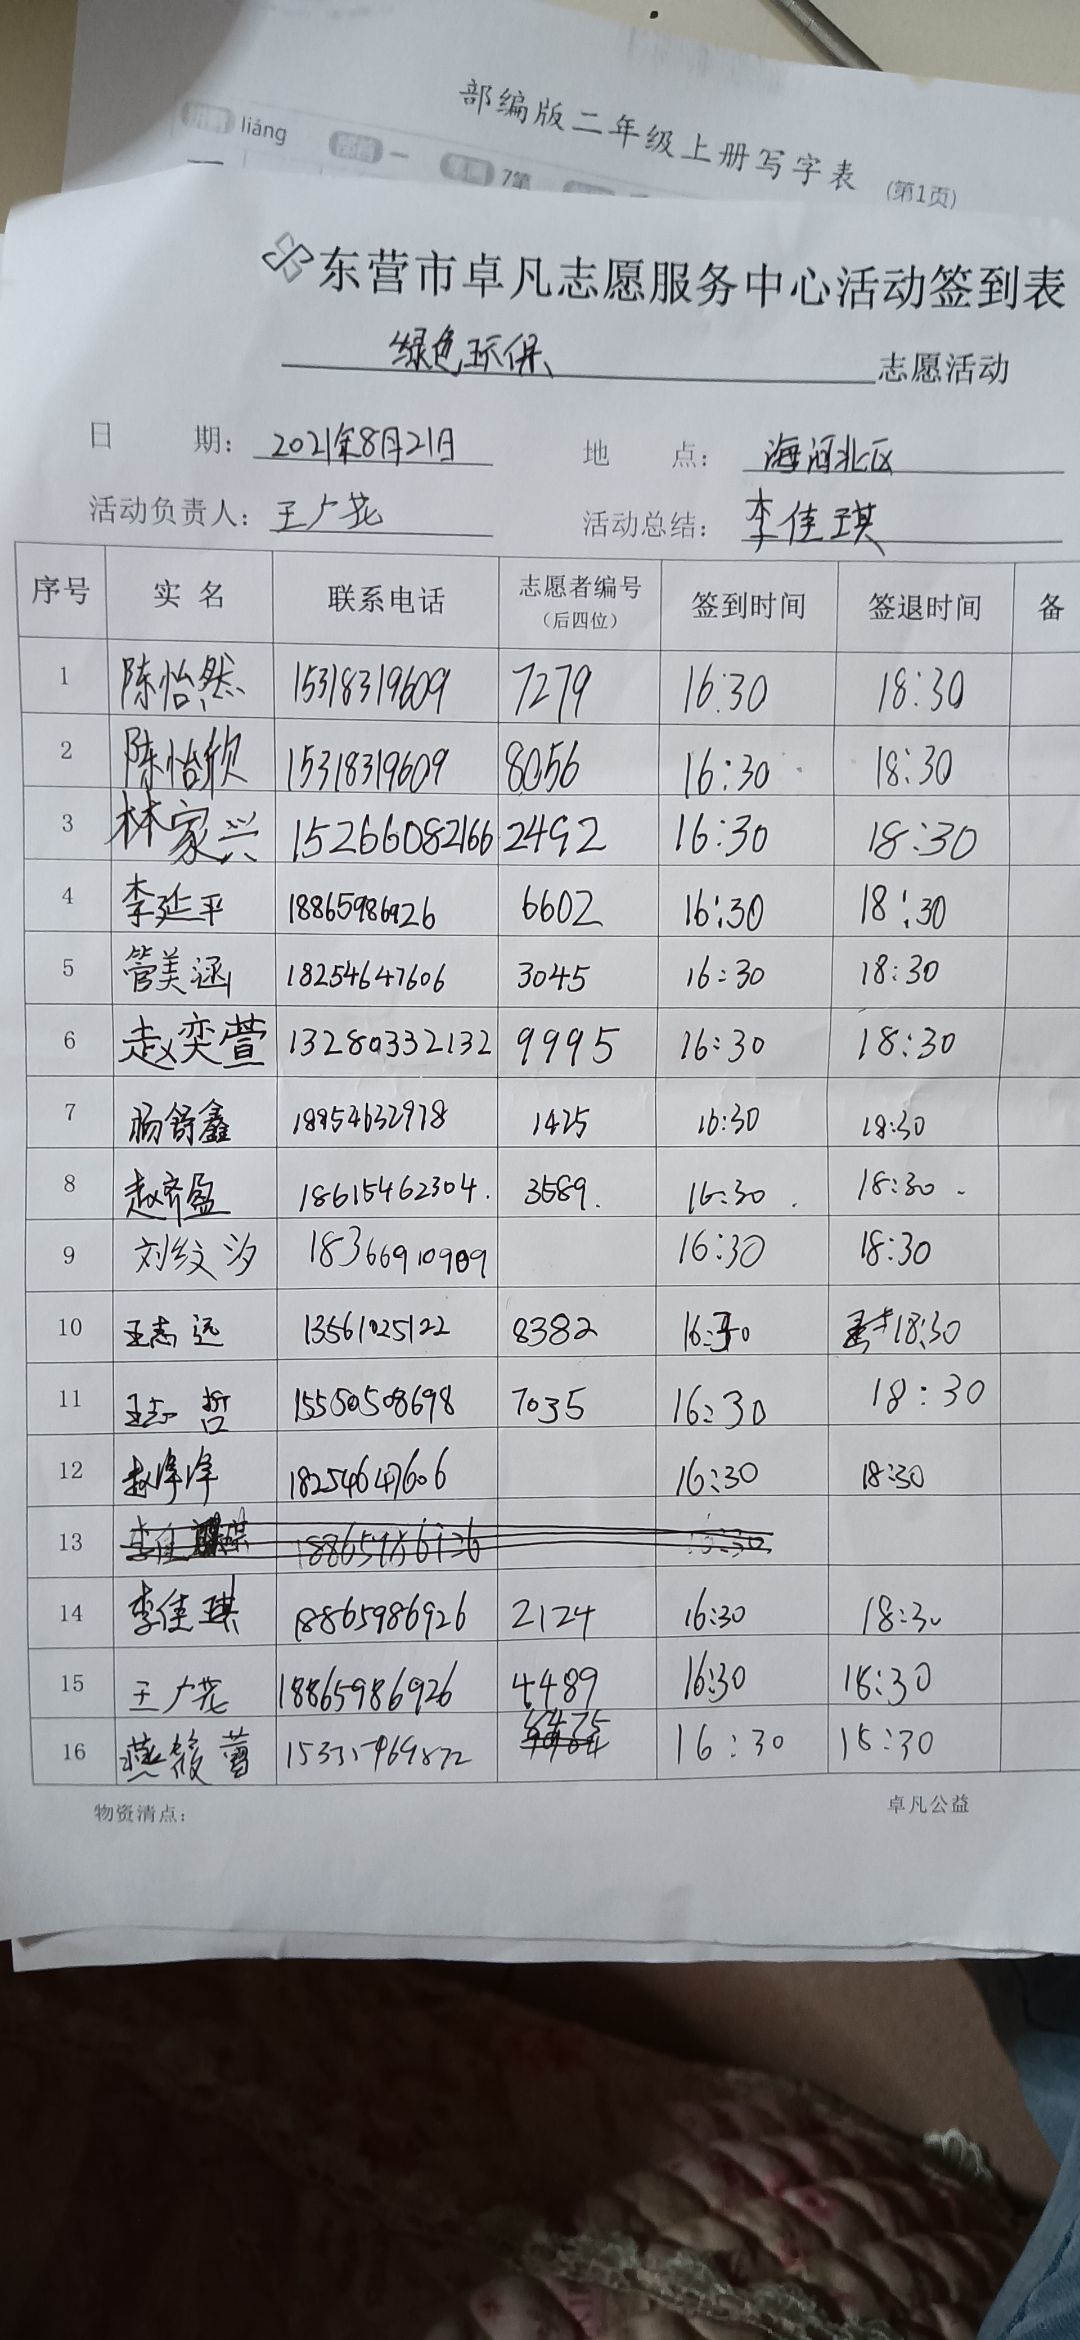 部编版二年级上册写字表 (第1页)
liáng 一 7第
东营市卓凡志愿服务中心活动签到表
绿色环保 志愿活动
日 期: 2021年8月21日 地 点: 海河北区
活动负责人: 王广花 活动总结: 李佳琪
序号 实名 联系电话 志愿者编号 (后四位) 签到时间 签退时间 备
1 陈怡然 15318319609 7279 16:30 18:30
2 陈怡欣 15318319609 8056 16:30 18:30
3 林家兴 15266082166 2492 16:30 18:30
4 李延平 18865986926 6602 16:30 18:30
5 管美涵 18254647606 3045 16:30 18:30
6 赵奕萱 13280332132 9995 16:30 18:30
7 杨舒鑫 18954632978 1425 16:30 18:30
8 赵齐盈 18615462304. 3589. 16:30. 18:30.
9 刘纹汐 18366910909 16:30 18:30
10 王志远 13561025122 8382 16:30 18:30
11 王志哲 15550508698 7035 16:30 18:30
12 赵泽泽 18254647606 16:30 18:30
13
14 李佳琪 18865986926 2124 16:30 18:30
15 王广花 18865986926 4489 16:30 18:30
16 燕 16:30 18:30
物资清点: 卓凡公益